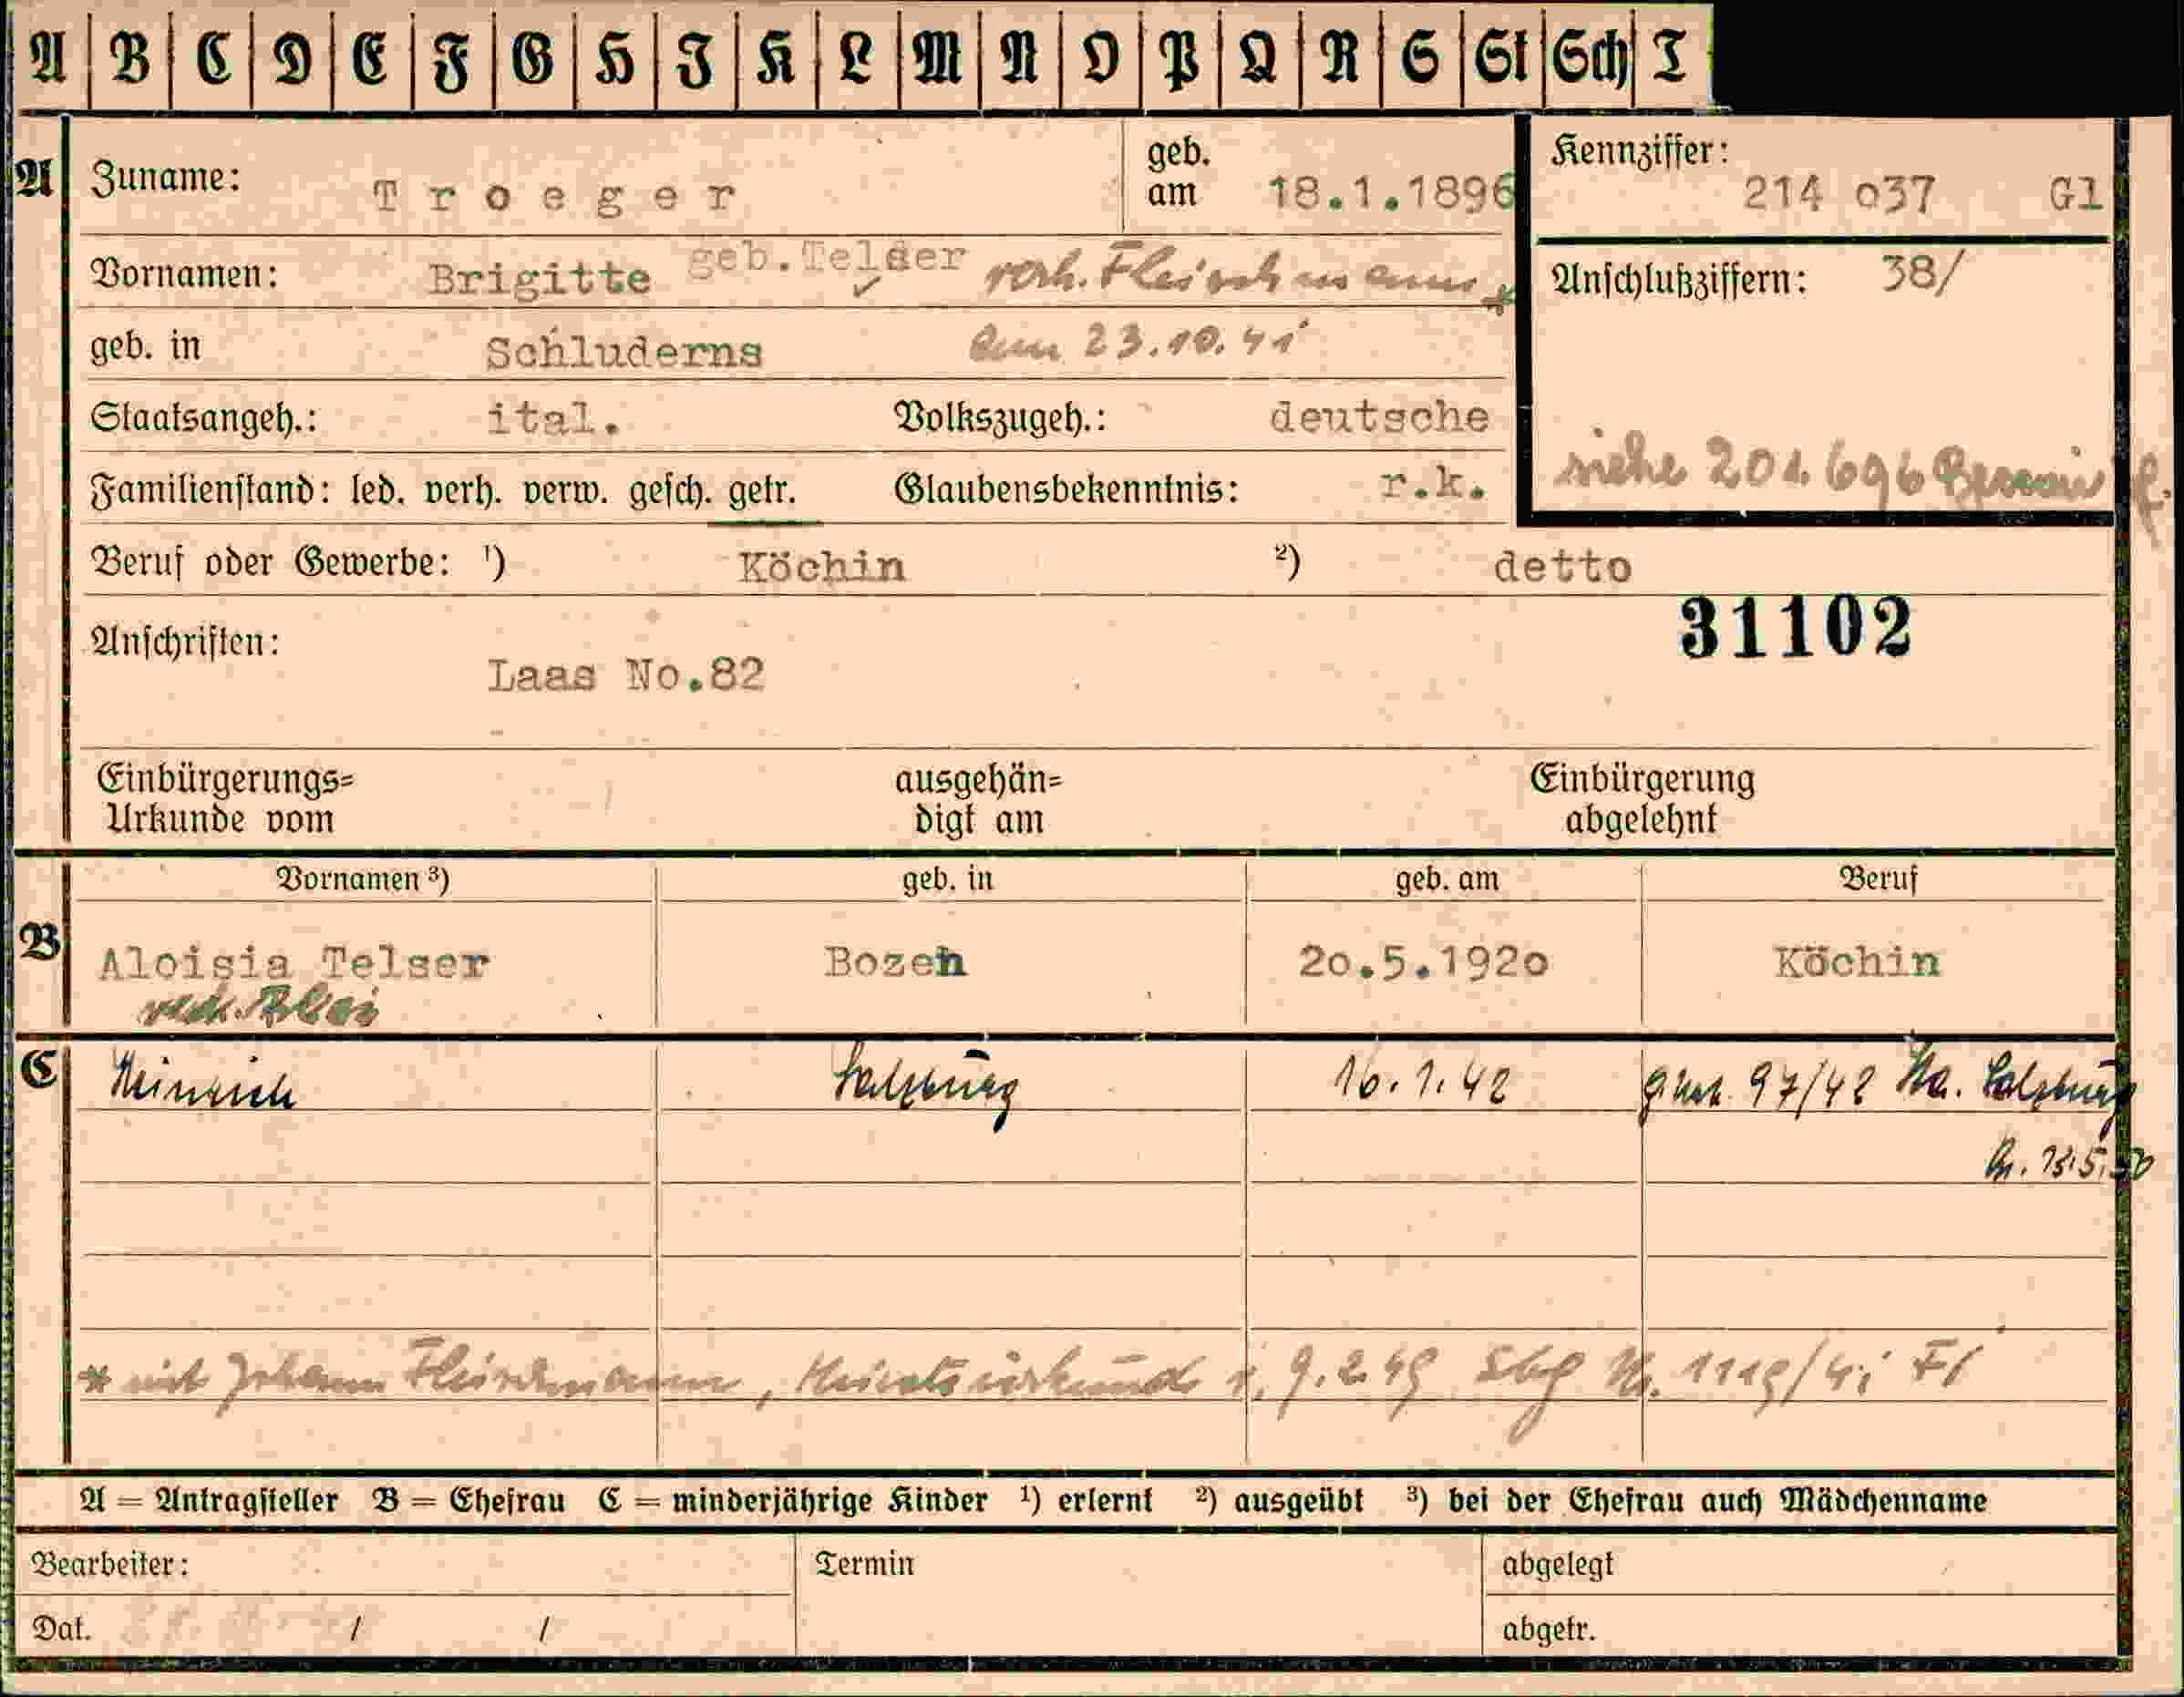 A B C D E F G H I K L M N O P Q R S St Sch T
A
Zuname: Troeger
geb. am 18.1.1896
Kennziffer: 214 o37 Gl
Vornamen: Brigitte geb.Telser verh. Fleischmann *
Anschlußziffern: 38/
geb. in Schluderns am 23.10.41
Staatsangeh.: ital. Volkszugeh.: deutsche
siehe 201.696
Familienstand: led. verh. verw. gesch. getr. Glaubensbekenntnis: r.k.
Beruf oder Gewerbe: ¹) Köchin ²) detto
31102
Anschriften:
Laas No.82
Einbürgerungs= ausgehän= Einbürgerung
Urkunde vom digt am abgelehnt
Vornamen ³) geb. in geb. am Beruf
B
Aloisia Telser Bozen 2o.5.192o Köchin
C
Heinrich Salzburg 16.1.42 97/42 Sta. Salzburg
* mit Johann Fleischmann, Heiratsurkunde v. 9.2.49 Sbg Nr.
A = Antragsteller B = Ehefrau C = minderjährige Kinder ¹) erlernt ²) ausgeübt ³) bei der Ehefrau auch Mädchenname
Bearbeiter: Termin abgelegt
Dat. / / abgetr.